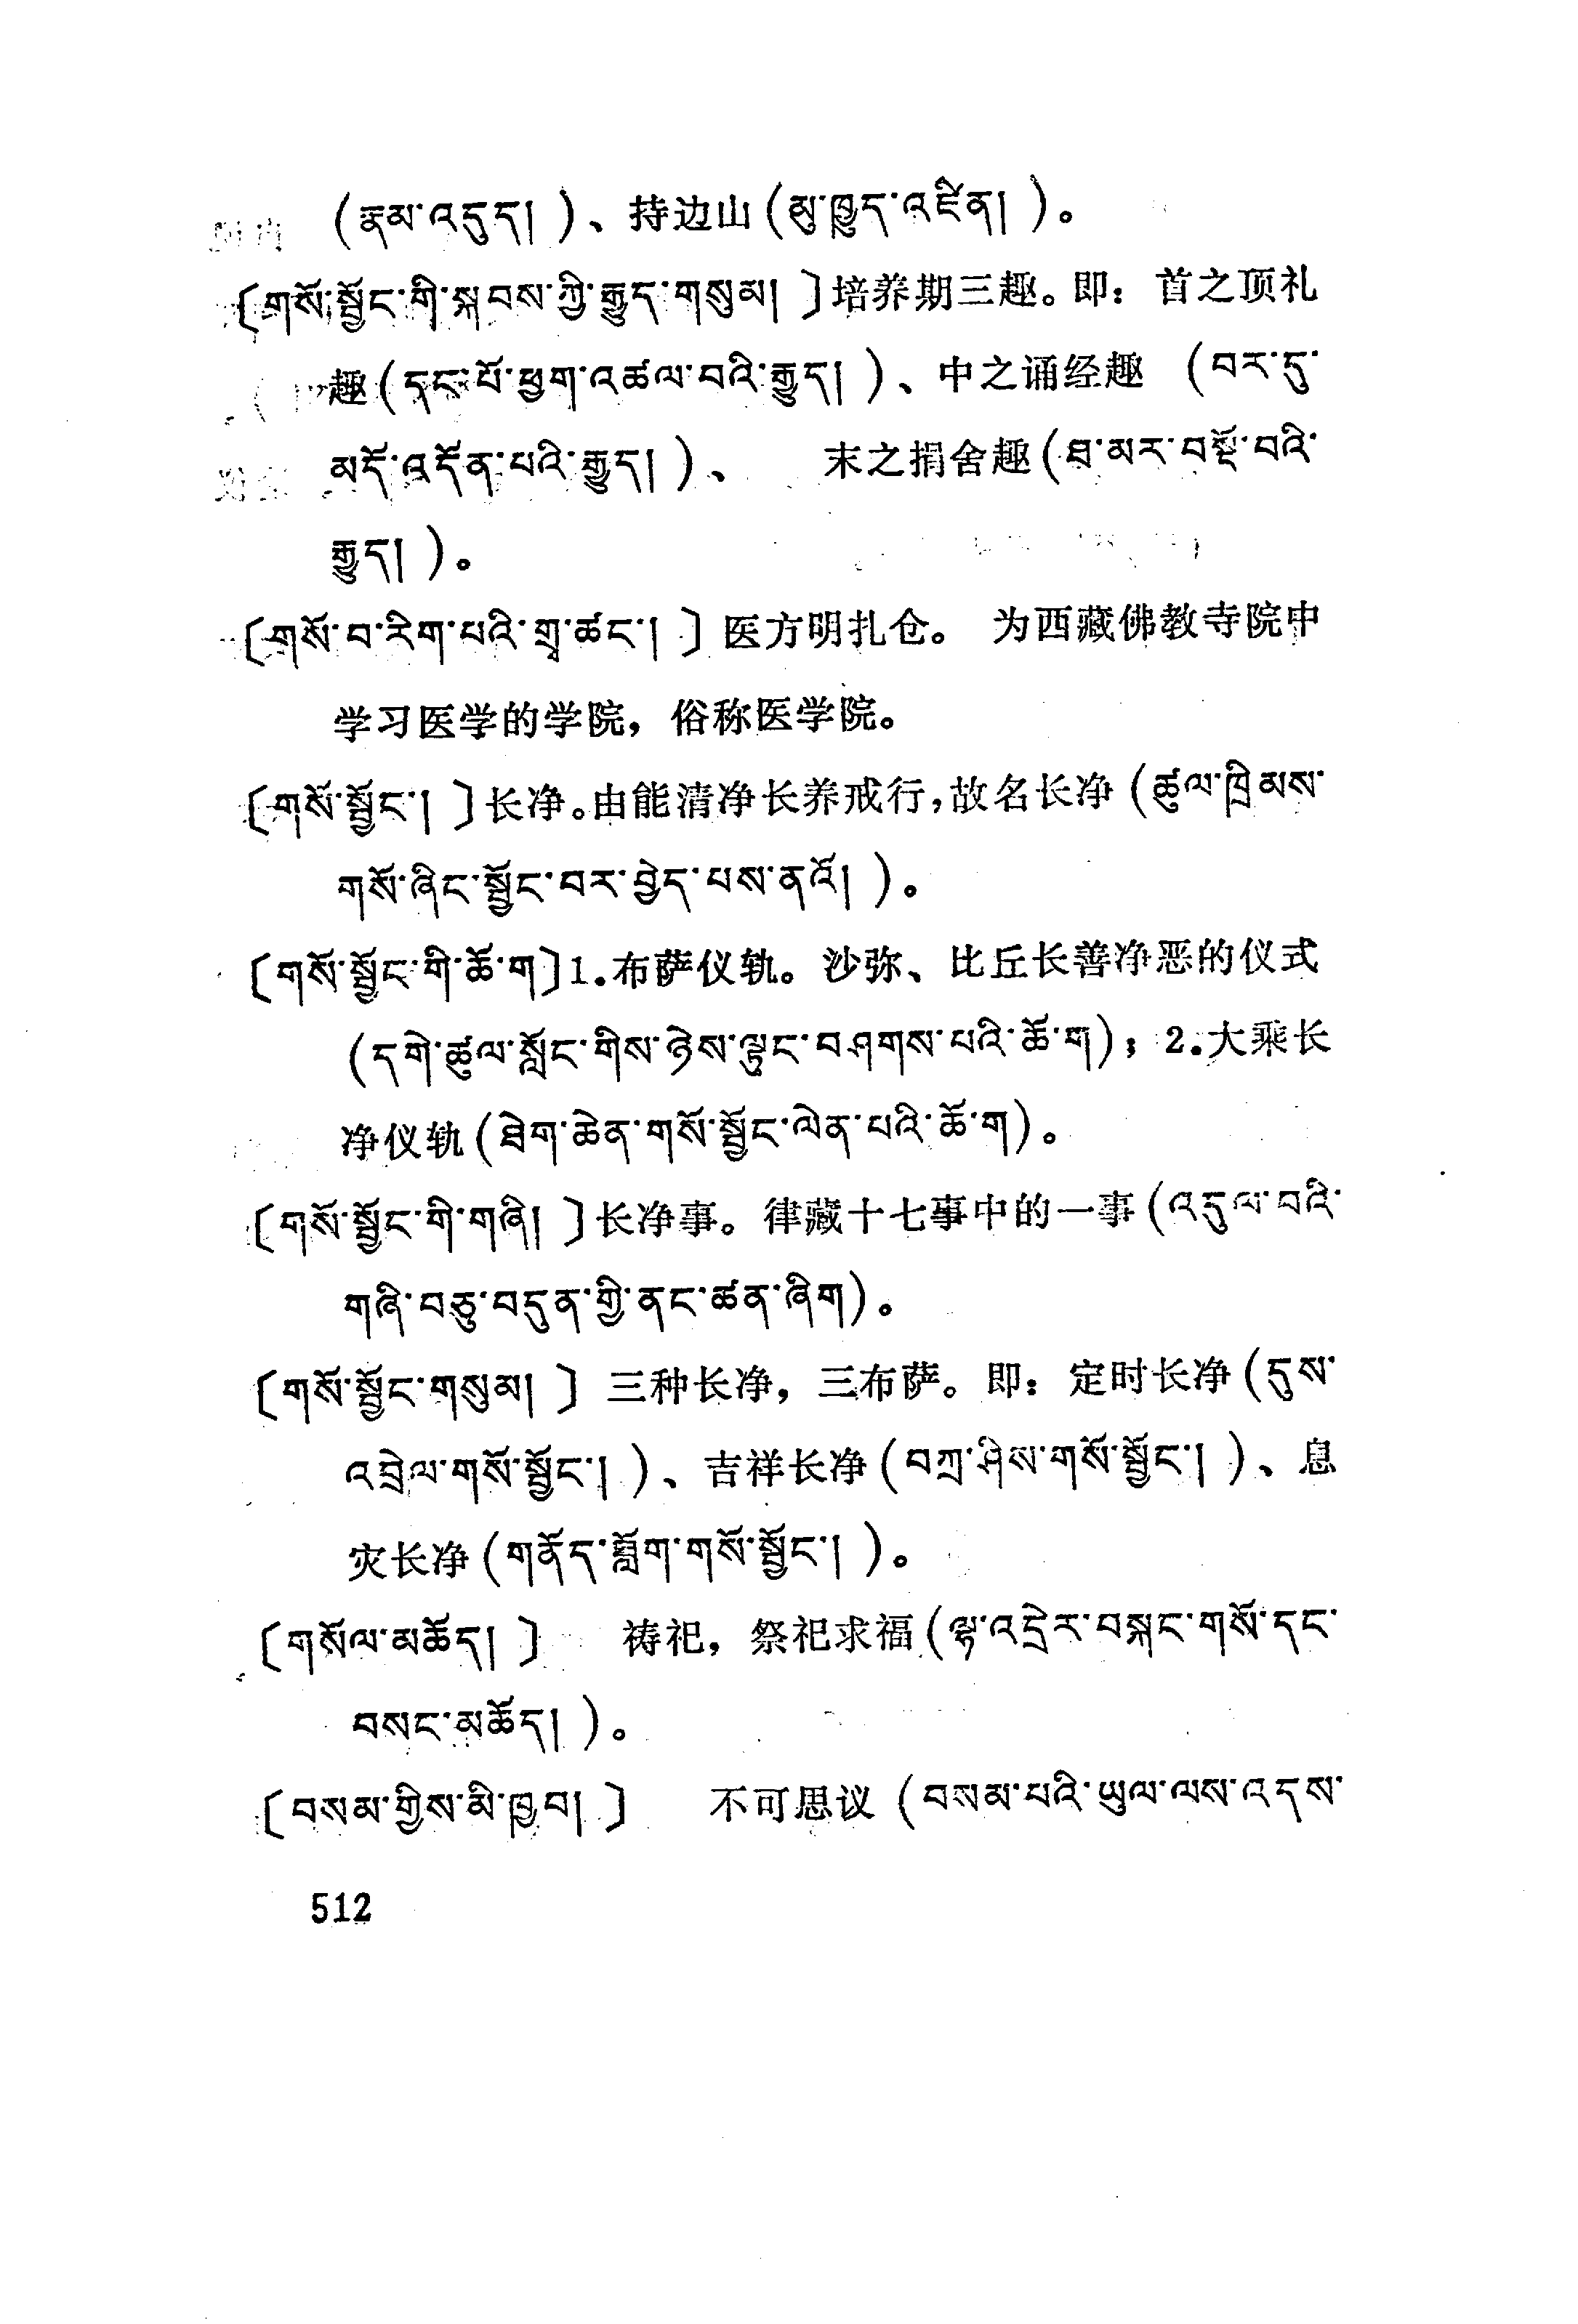 (རྣམ་འདུད། )、持边山(མུ་ཁྱུད་འཛིན། )。
〔གསོ་སྦྱོང་གི་སྐབས་ཀྱི་རྒྱུད་གསུམ། 〕培养期三趣。即：首之顶礼
趣(དང་པོ་ཕྱག་འཚལ་བའི་རྒྱུད། )、中之诵经趣 (བར་དུ་
མདོ་འདོན་པའི་རྒྱུད། )、 末之捐舍趣(ཐ་མར་བསྔོ་བའི་
རྒྱུད། )。
〔གསོ་བ་རིག་པའི་གྲྭ་ཚང་། 〕医方明扎仓。 为西藏佛教寺院中
学习医学的学院，俗称医学院。
〔གསོ་སྦྱོང་། 〕长净。由能清净长养戒行，故名长净(ཚུལ་ཁྲིམས་
གསོ་ཞིང་སྦྱོང་བར་བྱེད་པས་ནའོ། )。
〔གསོ་སྦྱོང་གི་ཆོ་ག〕1.布萨仪轨。沙弥、比丘长善净恶的仪式
(དགེ་ཚུལ་སློང་གིས་ཉེས་ལྟུང་བཤགས་པའི་ཆོ་ག)；2.大乘长
净仪轨(ཐེག་ཆེན་གསོ་སྦྱོང་ལེན་པའི་ཆོ་ག)。
〔གསོ་སྦྱོང་གི་གཞི། 〕长净事。律藏十七事中的一事(འདུལ་བའི་
གཞི་བཅུ་བདུན་གྱི་ནང་ཚན་ཞིག)。
〔གསོ་སྦྱོང་གསུམ། 〕 三种长净，三布萨。即：定时长净(དུས་
འབྲེལ་གསོ་སྦྱོང་། )、吉祥长净(བཀྲ་ཤིས་གསོ་སྦྱོང་། )、息
灾长净(གནོད་བློག་གསོ་སྦྱོང་། )。
〔གསོལ་མཆོད། 〕 祷祀，祭祀求福(ལྷ་འདྲེར་བསྐང་གསོ་དང་
བསང་མཆོད། )。
〔བསམ་གྱིས་མི་ཁྱབ། 〕 不可思议 (བསམ་པའི་ཡུལ་ལས་འདས་
512